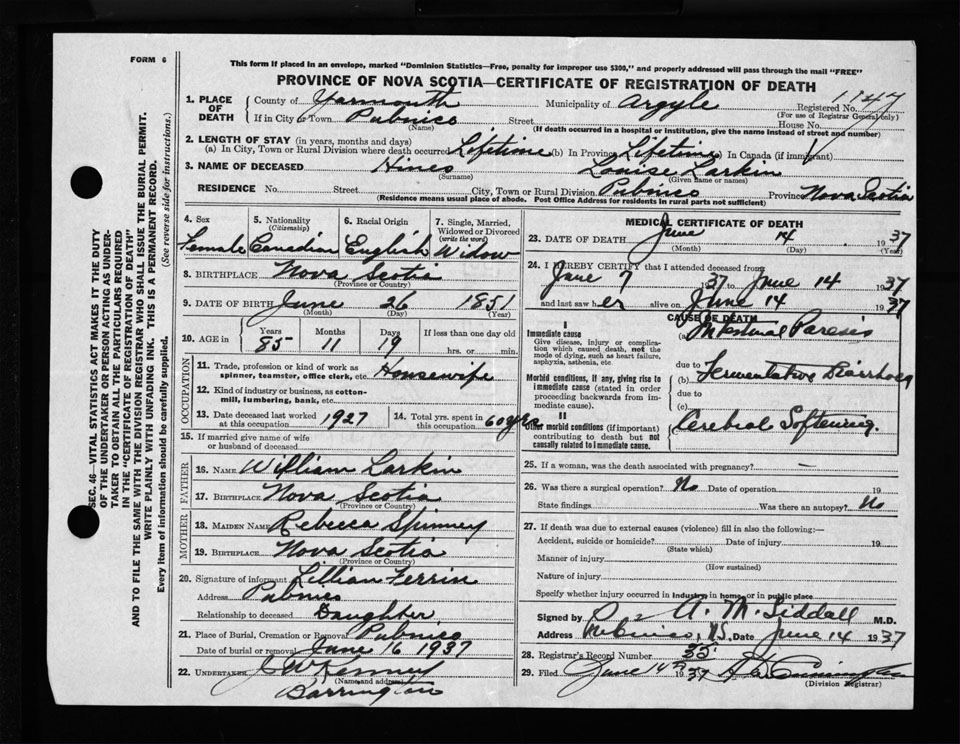 FORM 6
This form if placed in an envelope, marked "Dominion Statistics—Free, penalty for improper use $300," and properly addressed will pass through the mail "FREE"
PROVINCE OF NOVA SCOTIA—CERTIFICATE OF REGISTRATION OF DEATH
1. PLACE OF DEATH County of Yarmouth Municipality of Argyle Registered No. 1147
(For use of Registrar General only)
If in City or Town Pubnico Street House No.
(Name) (If death occurred in a hospital or institution, give the name instead of street and number)
2. LENGTH OF STAY (in years, months and days)
(a) In City, Town or Rural Division where death occurred Lifetime (b) In Province Lifetime (c) In Canada (if immigrant)
3. NAME OF DECEASED Hines Louise Larkin
(Surname) (Given name or names)
RESIDENCE No. Street City, Town or Rural Division Pubnico Province Nova Scotia
(Residence means usual place of abode. Post Office Address for residents in rural parts not sufficient)
4. Sex Female
5. Nationality (Citizenship) Canadian
6. Racial Origin English
7. Single, Married, Widowed or Divorced (write the word) Widow
8. BIRTHPLACE Nova Scotia
(Province or Country)
9. DATE OF BIRTH June 26 1851
(Month) (Day) (Year)
10. AGE in Years 85 Months 11 Days 19 If less than one day old hrs. or min.
OCCUPATION
11. Trade, profession or kind of work as spinner, teamster, office clerk, etc. Housewife
12. Kind of industry or business, as cotton-mill, lumbering, bank, etc.
13. Date deceased last worked at this occupation 1927
14. Total yrs. spent in this occupation 60 yrs
15. If married give name of wife or husband of deceased
FATHER
16. NAME William Larkin
17. BIRTHPLACE Nova Scotia
(Province or Country)
MOTHER
18. MAIDEN NAME Rebecca Spinney
19. BIRTHPLACE Nova Scotia
(Province or Country)
20. Signature of informant Lillian Ferrin
Address Pubnico
Relationship to deceased Daughter
21. Place of Burial, Cremation or Removal Pubnico
Date of burial or removal June 16 1937
22. UNDERTAKER J W Kenney
(Name and address)
Barrington
MEDICAL CERTIFICATE OF DEATH
23. DATE OF DEATH June 14 1937
(Month) (Day) (Year)
24. I HEREBY CERTIFY that I attended deceased from
June 7 1937 to June 14 1937
and last saw her alive on June 14 1937
CAUSE OF DEATH
I
Immediate cause
Give disease, injury or complication which caused death, not the mode of dying, such as heart failure, asphyxia, asthenia, etc.
(a) Intestinal Paresis
due to
Morbid conditions, if any, giving rise to immediate cause (stated in order proceeding backwards from immediate cause).
(b) Fermentative Diarrhoea
due to
(c)
II
Other morbid conditions (if important) contributing to death but not causally related to immediate cause.
Cerebral Softening.
25. If a woman, was the death associated with pregnancy? —
26. Was there a surgical operation? No Date of operation 19
State findings Was there an autopsy? No
27. If death was due to external causes (violence) fill in also the following:—
Accident, suicide or homicide? Date of injury 19
(State which)
Manner of injury
(How sustained)
Nature of injury
Specify whether injury occurred in industry, in home, or in public place
Signed by A. M. Siddall M.D.
Address Pubnico, N.S. Date June 14 1937
28. Registrar's Record Number 35
29. Filed June 1937
(Division Registrar)
SEC. 46—VITAL STATISTICS ACT MAKES IT THE DUTY
OF THE UNDERTAKER OR PERSON ACTING AS UNDER-
TAKER TO OBTAIN ALL THE PARTICULARS REQUIRED
IN THE "CERTIFICATE OF REGISTRATION OF DEATH"
AND TO FILE THE SAME WITH THE DIVISION REGISTRAR WHO SHALL ISSUE THE BURIAL PERMIT.
WRITE PLAINLY WITH UNFADING INK. THIS IS A PERMANENT RECORD.
Every item of information should be carefully supplied. (See reverse side for instructions.)